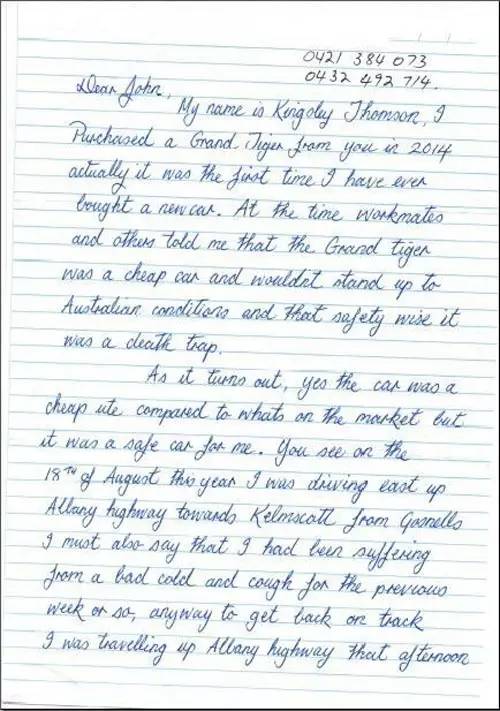 0421 384 073
0432 492 714.
Dear John,
My name is Kingsley Thomson, I
Purchased a Grand Tiger from you in 2014
actually it was the first time I have ever
bought a new car. At the time workmates
and others told me that the Grand tiger
was a cheap car and wouldn't stand up to
Australian conditions and that safety wise it
was a death trap.
As it turns out, yes the car was a
cheap ute compared to whats on the market but
it was a safe car for me. You see on the
18TH of August this year I was driving east up
Albany highway towards Kelmscott from Gosnells
I must also say that I had been suffering
from a bad cold and cough for the previous
week or so, anyway to get back on track
I was travelling up Albany highway that afternoon